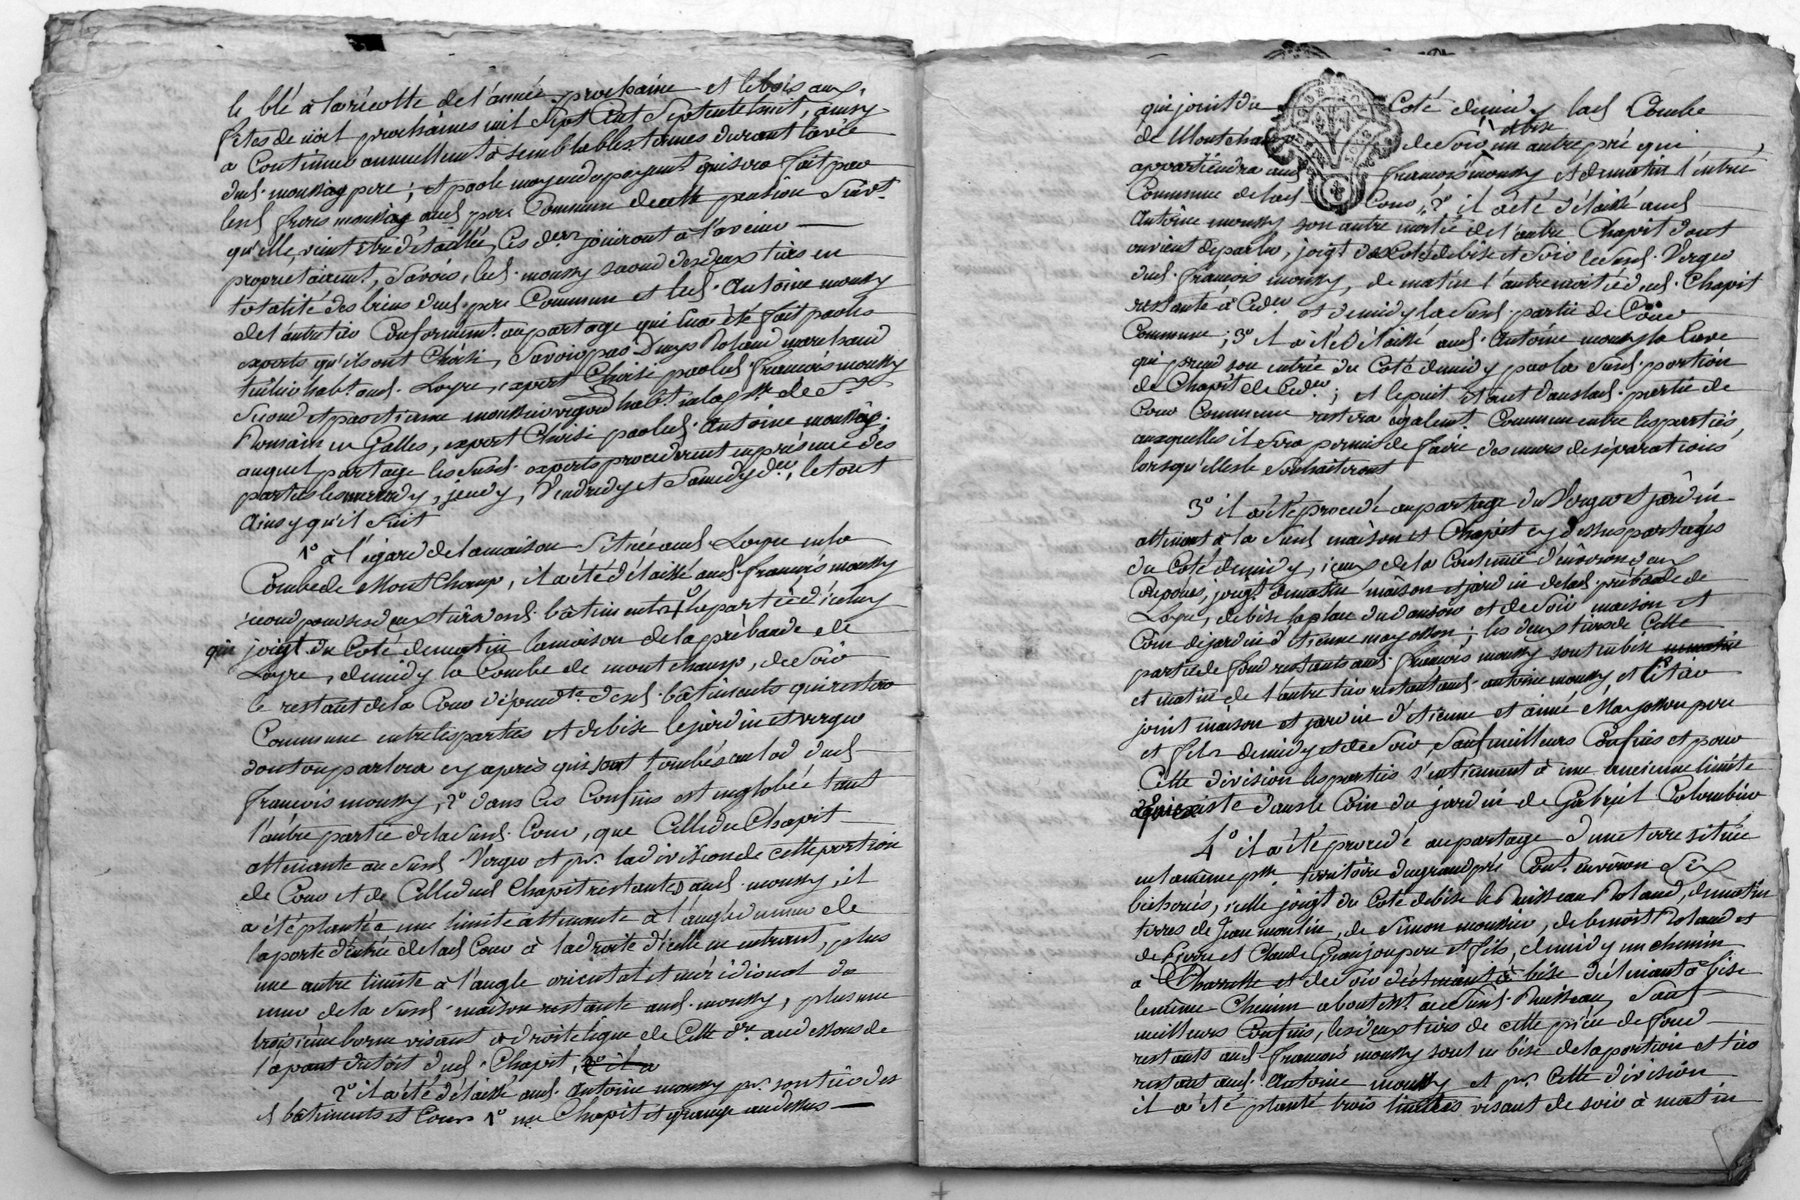 le blé à la récolte de l'année prochaine et le bois aux
fêtes de noël prochaines mil Sept Cent Septente huit, ainsy
a Continuer annuellement à semblables termes durant la vie
dud. moussy pere ; et par le moyen du payemt. qui sera fait par
lesd. freres moussy aud. pere Commun de cette pension Suivt.
qu'elle vient d'être détaillée, Ces dern. joüiront à l'avenir
proprietairemt, Savoir, led. moussy second des deux tiers en
totalité des biens dud. pere Commun et led. Antoine moussy
de l'autre tier Conformemt. au partage qui en a été fait par les
experts qu'ils ont Choisi, Savoir par Roland marchand
habt. aud. Loyre, expert Choisi par led. françois moussy
Second et par etienne vigneron habt. en la psse. de St.
Romain en Galles, expert Choisi par led. Antoine moussy,
auquel partage lesd. susd. experts procederent en présence des
parties les mercredy, jeudy, Vendredy et Samedy der., le tout
Ainsy qu'il Suit
1° à l'égard de la maison Située aud. Loyre en la
Combe de Montchamp, il a été délaissé aud. françois moussy
second pour ses deux tiers desd. bâtiments 1° la partie d'iceluy
qui joigt du Coté de matin la maison de la prébande de
Loyre, de midy la Combe de montchamp, de Soir
le restant de la Cour dépendte. desd. bâtiments qui restera
Commune entre les parties et de bise le jardin et verger
dont on parlera cy après qui sont tombés au lod dud.
françois moussy, 2° dans Ces Confins est englobée tant
l'autre partie de la Susd. Cour, que Celle du Chapit
attenante au Susd. Verger et pr. la division de cette portion
de Cour et de Celle dud. Chapit restantes aud. moussy, il
a été plantée une limite attenante à l'angle du mur de
la porte d'entrée de lad. Cour à la droite d'icelle en entrant, plus
une autre limite à l'angle orientat et méridional du
mur de la Susd. maison restante aud. moussy, plus une
troisieme borne visant à droite ligne de Cette dre. au dessous de
l'avant du toît dud. Chapit, 2° il a
2° il a été délaissé aud. Antoine moussy pr. son tier des
sd. bâtiments et Cour 1° un Chapit et grange au dessus
qui joint du Coté de midy lad. Combe
de Montcham de Soir de bise un autre pré qui
appartiendra aud. françois moussy et de matin l'entrée
Commune de lad. Cour ; 2° il a été délaissé aud.
Antoine moussy son autre moitié de l'autre Chapit dont
on vient de parler, joigt. du Coté de bise et Soir le Susd. Verger
dud. françois moussy, de matin l'autre moitié dud. Chapit
restante à Ceder. et de midy la Susd. partie de Cour
Commune ; 3° il a été délaissé aud. Antoine moussy la Cave
qui prend son entrée du Coté de midy par la Susd. portion
de Chapit de Ceder. ; et le puit etant dans lad. partie de
Cour Commune restera également Commun entre les parties,
auxquelles il Sera permis de faire des murs de séparations
lorsqu'elles le Souhaiteront
3° il a été procédé au partage du Verger et jardin
attenant à la Susd. maison et Chapit cy dessus partagés
du Coté de midy, iceux de la Contenüe d'environ deux
bichonés, joigt. de matin maison et jardin de lad. prébande de
Loyre, de bise la place du et de Soir maison et
Coin de jardin d'Etienne mazosson ; les deux tiers de Cette
partie de fond restants aud. françois moussy sont en bise
et matin de l'autre tier restant aud. antoine moussy, et Ce tier
joint maison et jardin d'etienne et aimé Mazosson pere
et fils de midy et de Soir, Sauf meilleurs Confins et pour
Cette division les parties s'en tiennent à une ancienne limite
qui existe dans le Coin du jardin de Gabriel Colombier
4° il a été procédé au partage d'une terre située
en la même psse. territoire du grand pré Contt. environ Six
bichonés, icelle joigt du Coté de bise le Ruisseau Roland, de matin
terres de Jean moulin, de Simon moussier, de benoit Roland et
de Pierre et Claude Granjon pere et fils, de midy un chemin
à Charette et de Soir déclinant à bise déclinant à bise
le même Chemin aboutisst. au Susd. Ruisseau, Sauf
meilleurs Confins, les deux tiers de cette pièce de fond
restants aud. françois moussy sont en bise de la portion et tier
restant aud. Antoine moussy et pr. Cette division
il a été planté trois limites visant de soir à matin